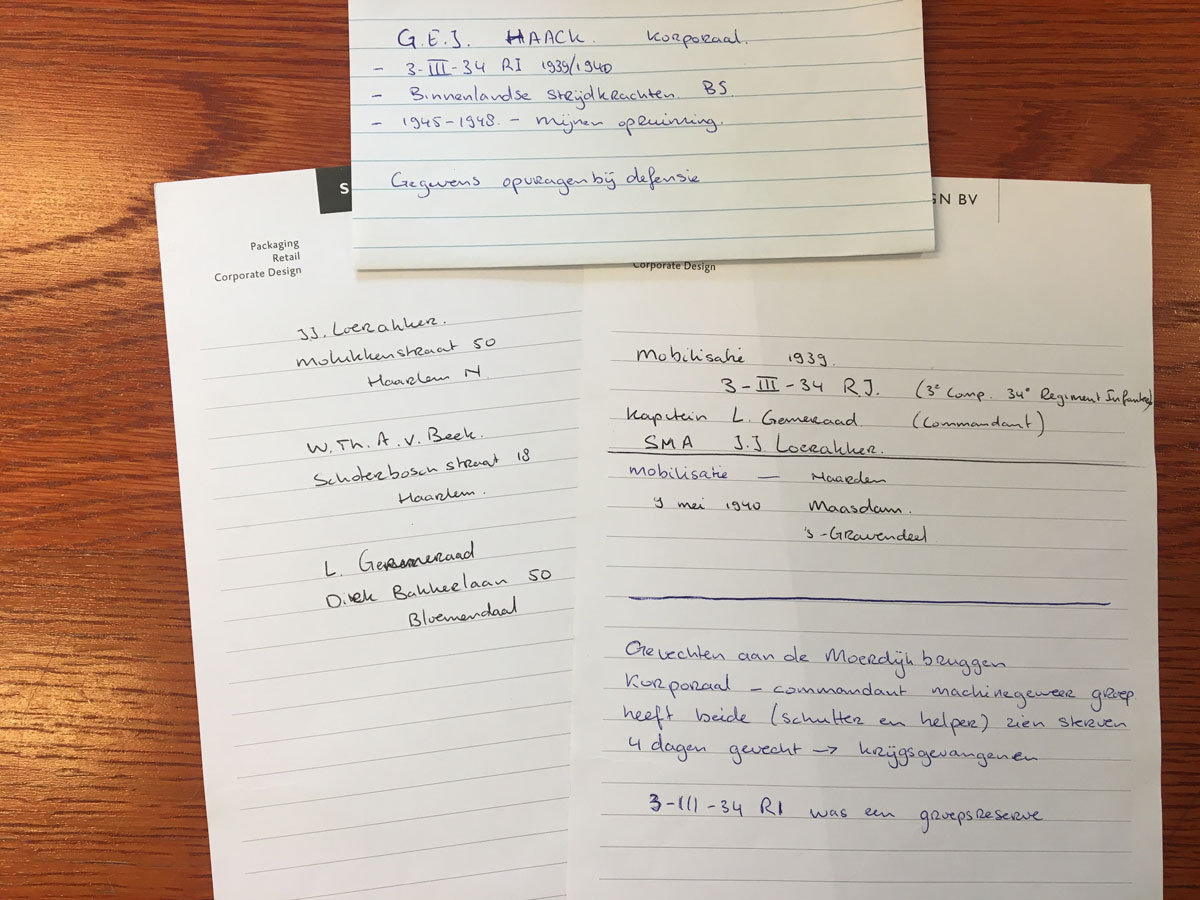 G.E.J. HAACK. Korporaal.
- 3-III-34 RI 1939/1940
- Binnenlandse strijdkrachten. BS.
- 1945-1948. - mijnen opruiming.
Gegevens opvragen bij defensie
S
Packaging
Retail
Corporate Design
J.J. Loerakker.
Molukkenstraat 50
Haarlem N
W. Th. A. v. Beek.
Schoterbosch straat 18
Haarlem.
L. Gemeraad
Dirk Bakkerlaan 50
Bloemendaal
GN BV
Corporate Design
Mobilisatie 1939.
3-III-34 R.J. (3e Comp. 34e Regiment Infanterie)
Kapitein L. Gemeraad (Commandant)
SMA J.J Loerakker.
Mobilisatie — Naarden
9 mei 1940 Maasdam.
's-Gravendeel
Gevechten aan de Moerdijk bruggen
Korporaal - commandant machinegeweer groep
heeft beide (schutter en helper) zien sterven
4 dagen gevecht → krijgsgevangenen
3-III-34 RI was een groepsreserve